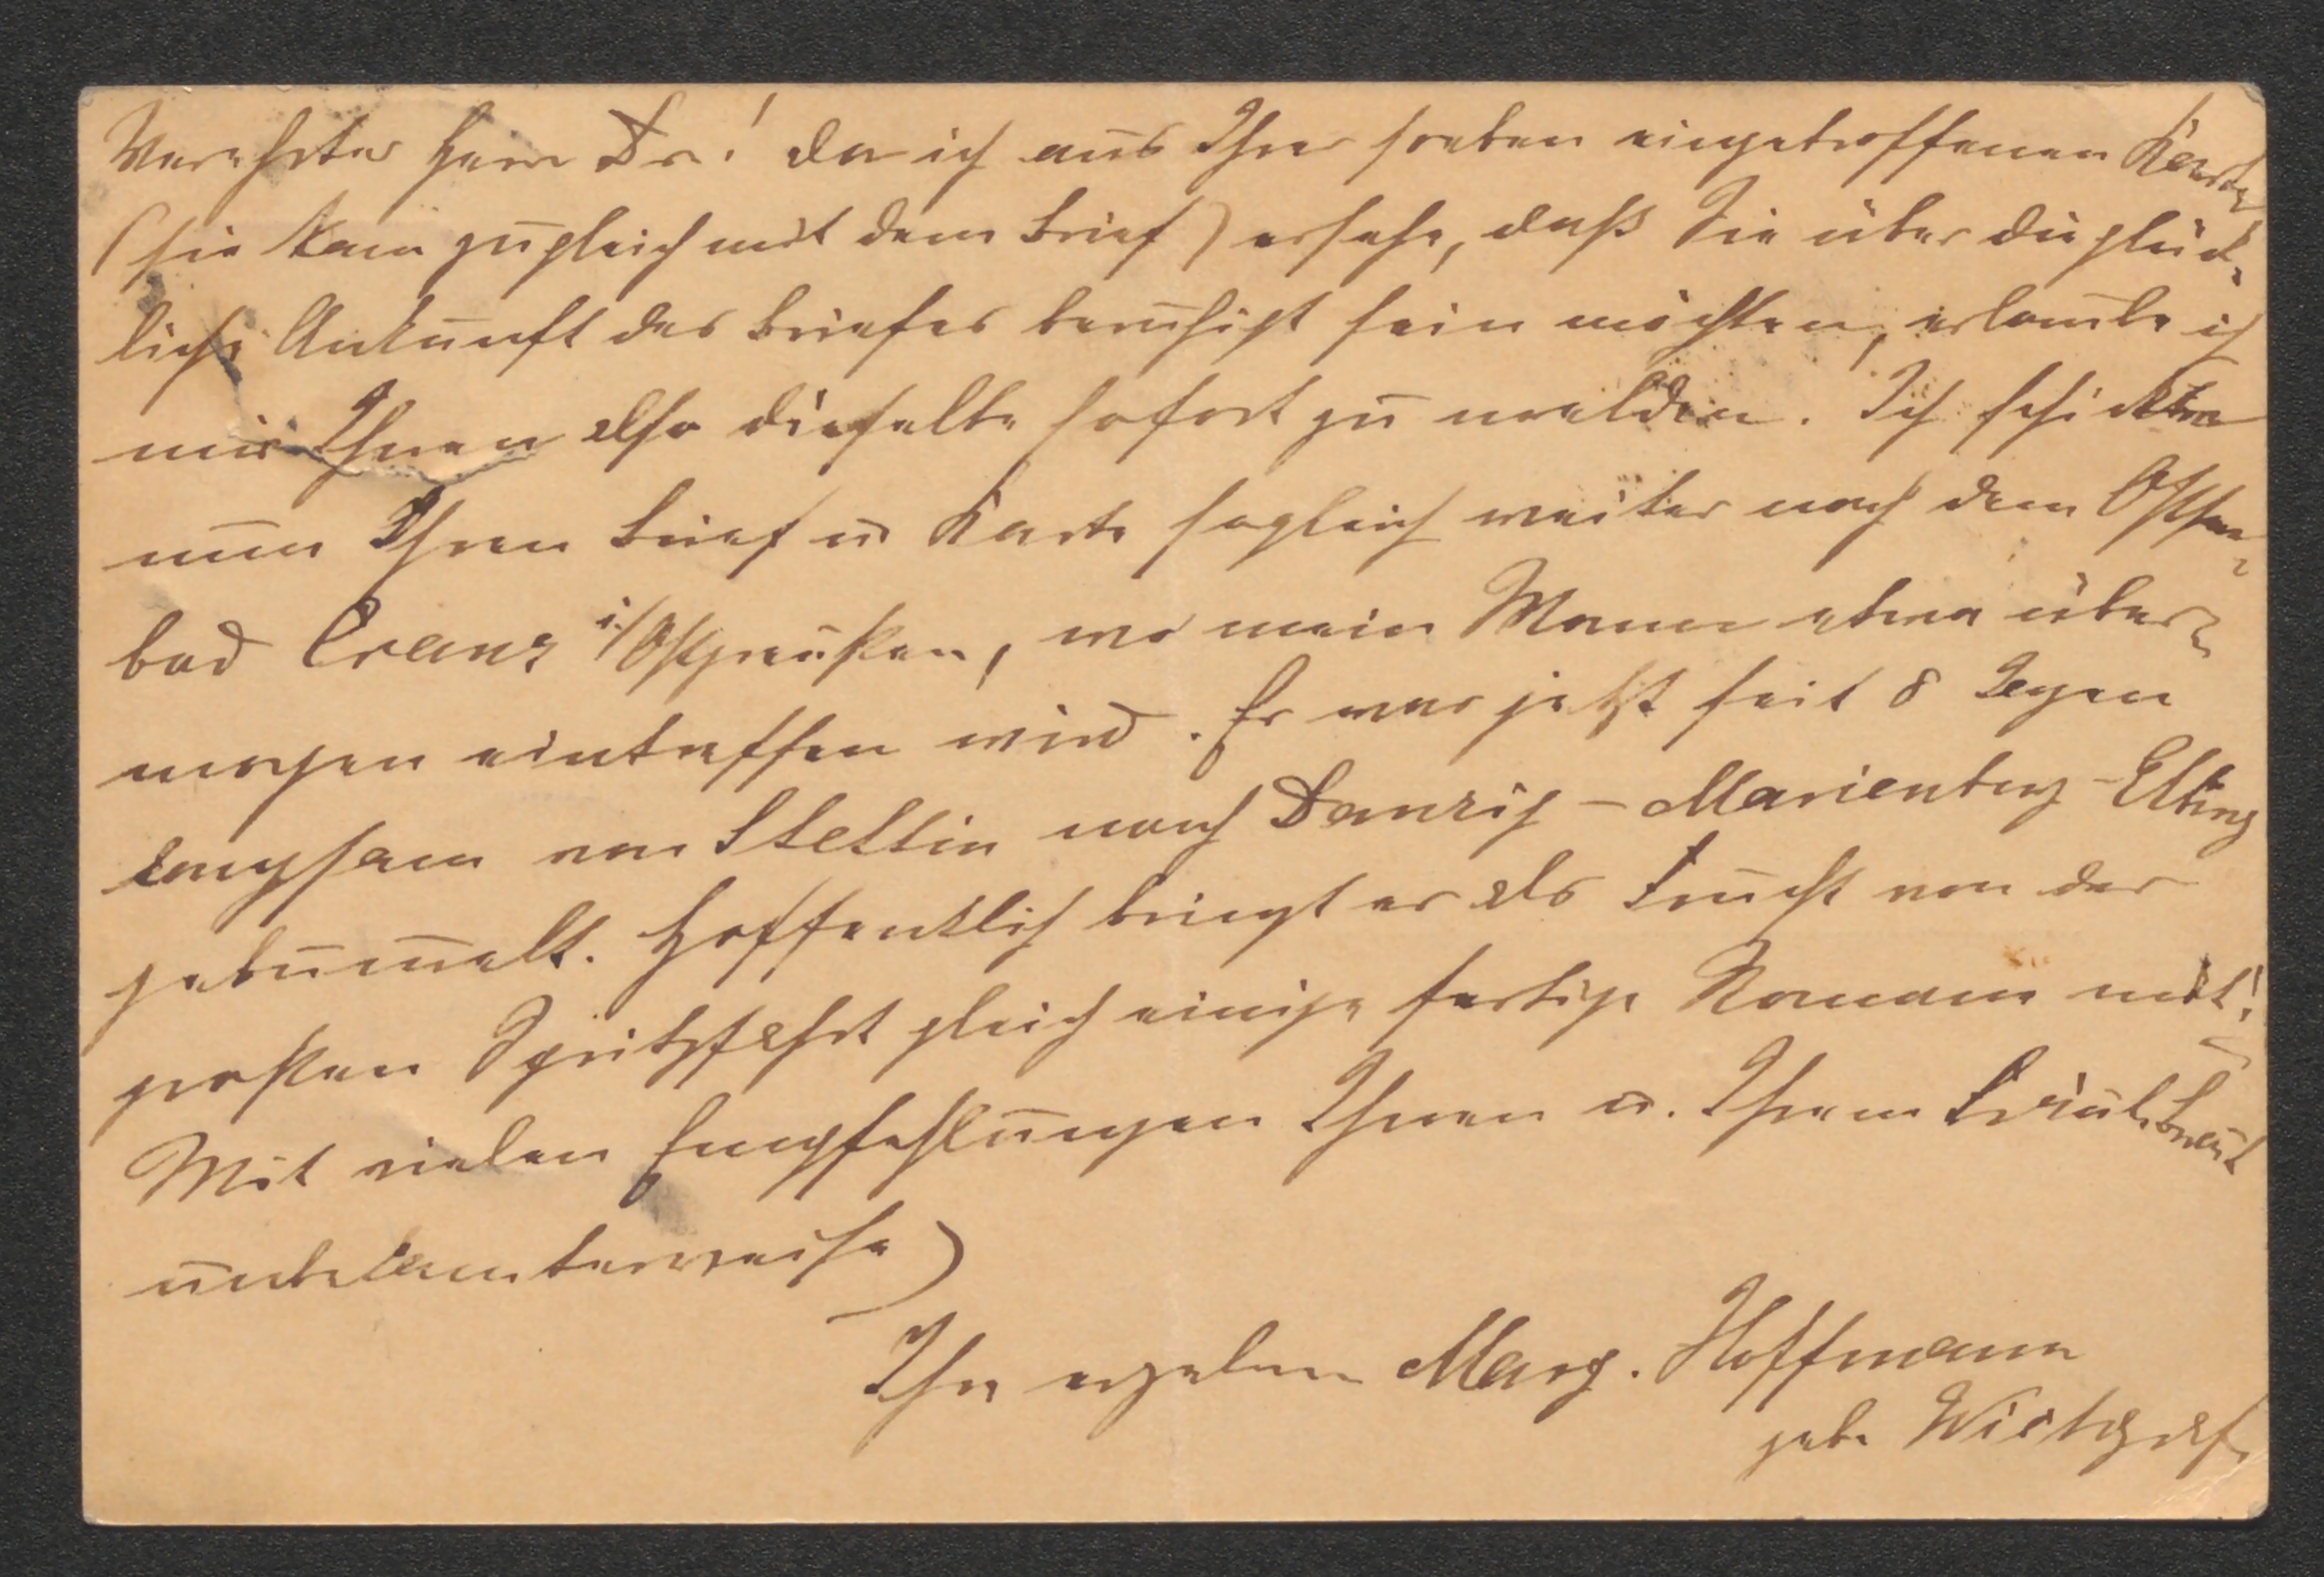 Verehrter Herr Dr! Da ich aus Ihrer soeben eingetroffenen Karte
(sie kam zugleich mit dem Brief) ersehe, daß Sie über die glück-
liche Ankunft des Briefes beruhigt sein möchten, erlaube ich
mir Ihnen also dieselbe sofort zu melden. Ich schickte
nun Ihren Brief u Karte sogleich weiter nach dem Ostsee-
bad Cranz i/Ostpreußen, wo mein Mann etwa über-
morgen eintreffen wird. Er war jetzt seit 8 Tagen
langsam von Stettin nach Danzig - Marienburg - Elbing
gebummelt. Hoffentlich bringt er als Frucht von der
großen Spritzfahrt gleich einige fertige Romane mit!
Mit vielen Empfehlungen Ihnen u. Ihrem Fräul. Braut
unbekannterweise)
Ihre ergebene Marg. Hoffmann
geb.